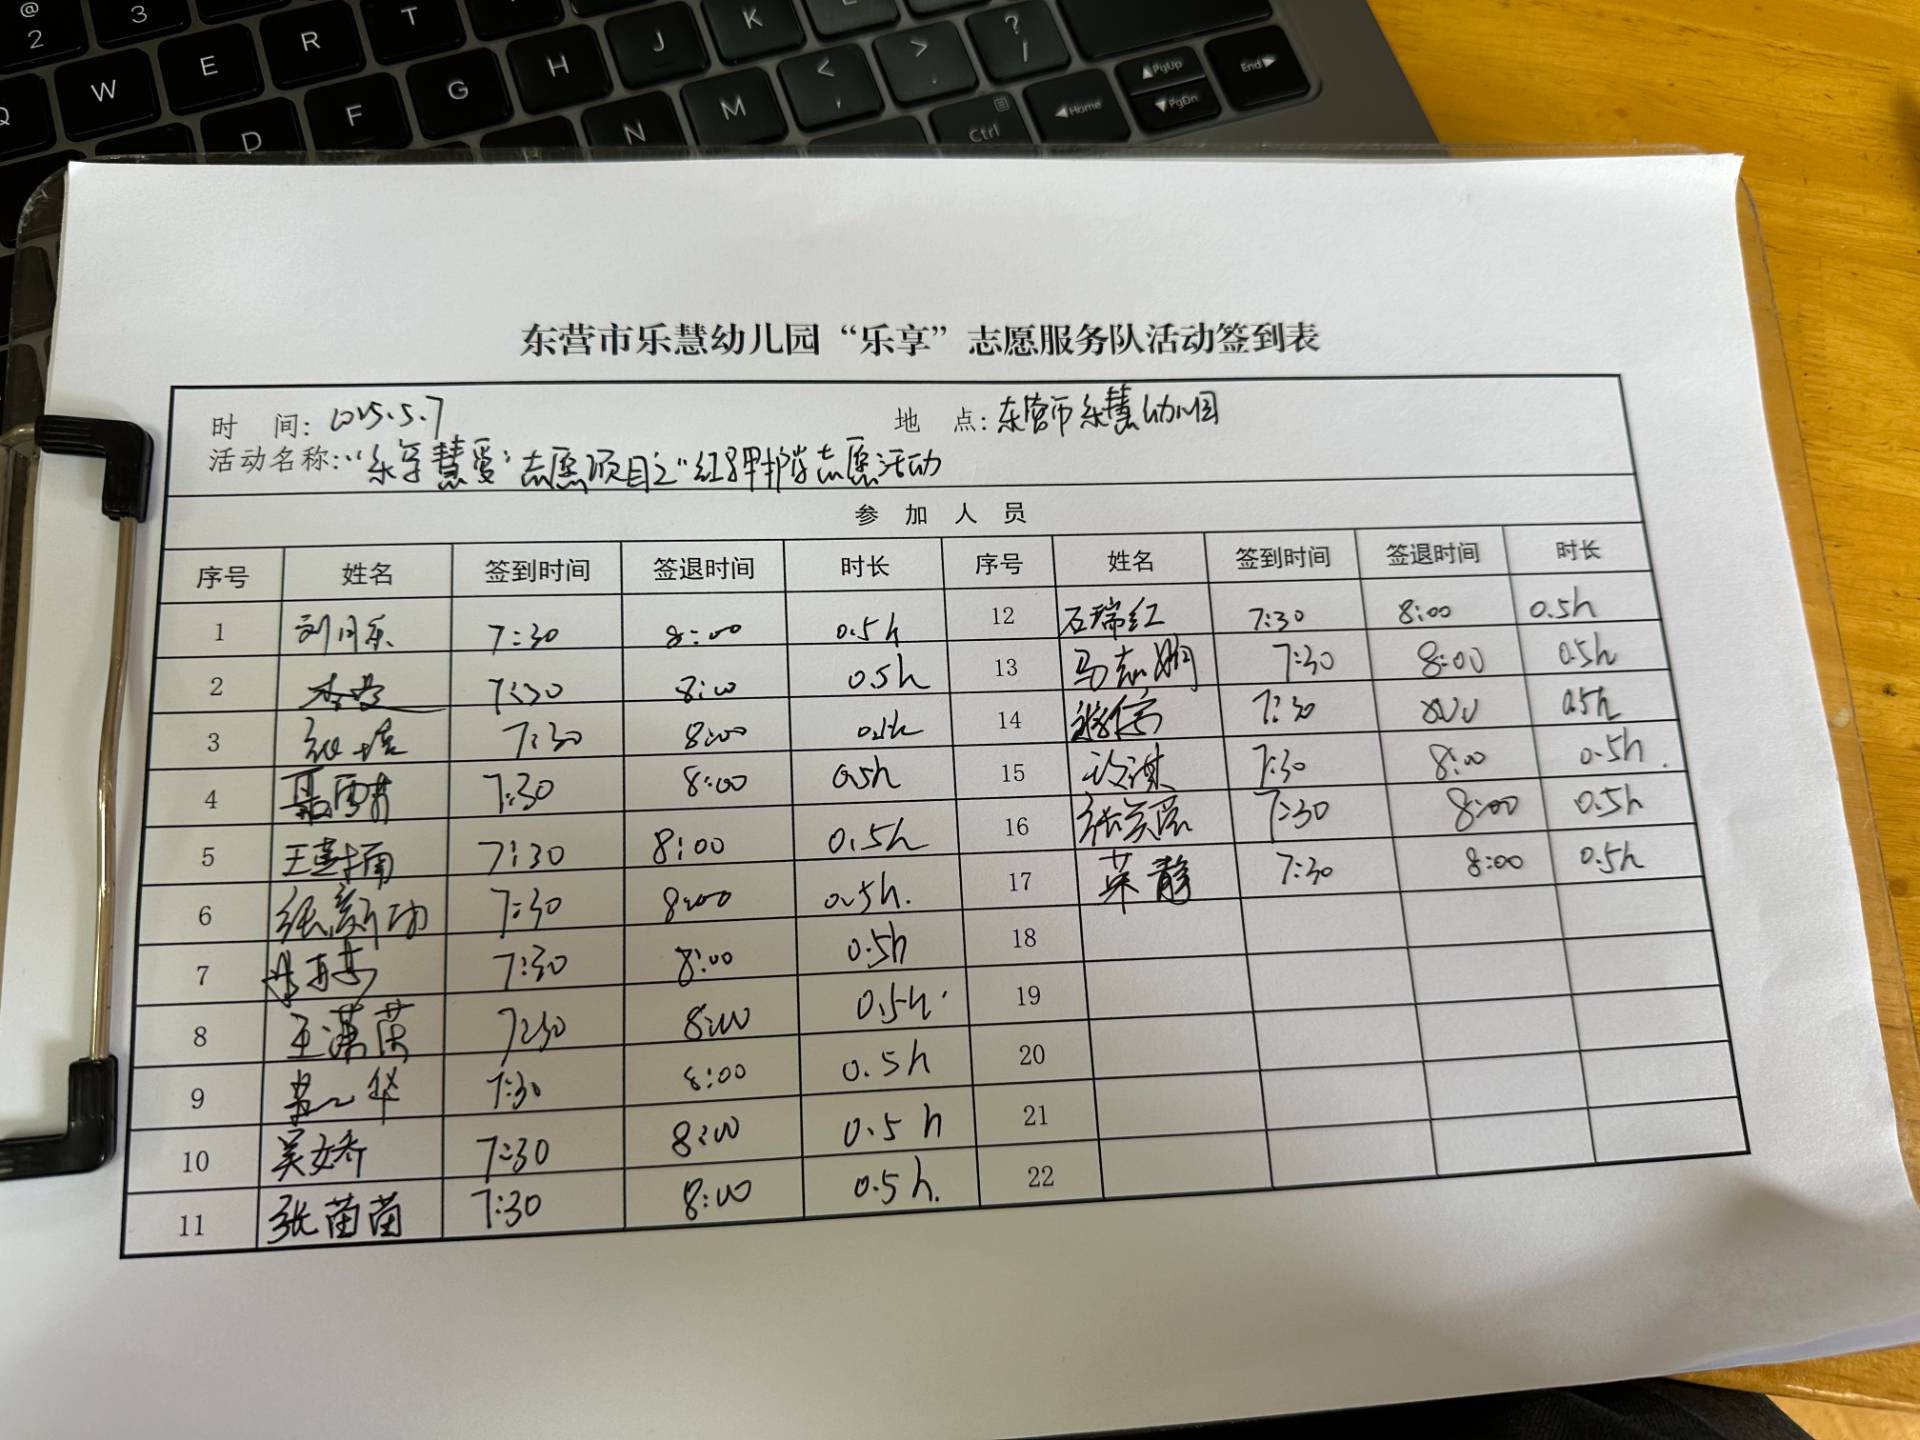 @ 2 3
W E R T
D F G H J K
N M < , > . ? /
Ctrl Home PgUp PgDn End
东营市乐慧幼儿园“乐享”志愿服务队活动签到表
时 间: 2025.5.7 地 点: 东营市乐慧幼儿园
活动名称: “乐享慧爱”志愿项目之“红马甲护学志愿活动
参 加 人 员
序号 姓名 签到时间 签退时间 时长 序号 姓名 签到时间 签退时间 时长
1 刘月乐 7:30 8:00 0.5h 12 石瑞红 7:30 8:00 0.5h
2 7:30 8:00 0.5h 13 马志娴 7:30 8:00 0.5h
3 7:30 8:00 0.5h 14 7:30 8:00 0.5h
4 7:30 8:00 0.5h 15 7:30 8:00 0.5h.
5 王楠 7:30 8:00 0.5h 16 张 7:30 8:00 0.5h
6 张新功 7:30 8:00 0.5h. 17 静 7:30 8:00 0.5h
7 7:30 8:00 0.5h 18
8 王潇茵 7:30 8:00 0.5h. 19
9 华 7:30 8:00 0.5h 20
10 吴娇 7:30 8:00 0.5h 21
11 张苗苗 7:30 8:00 0.5h. 22